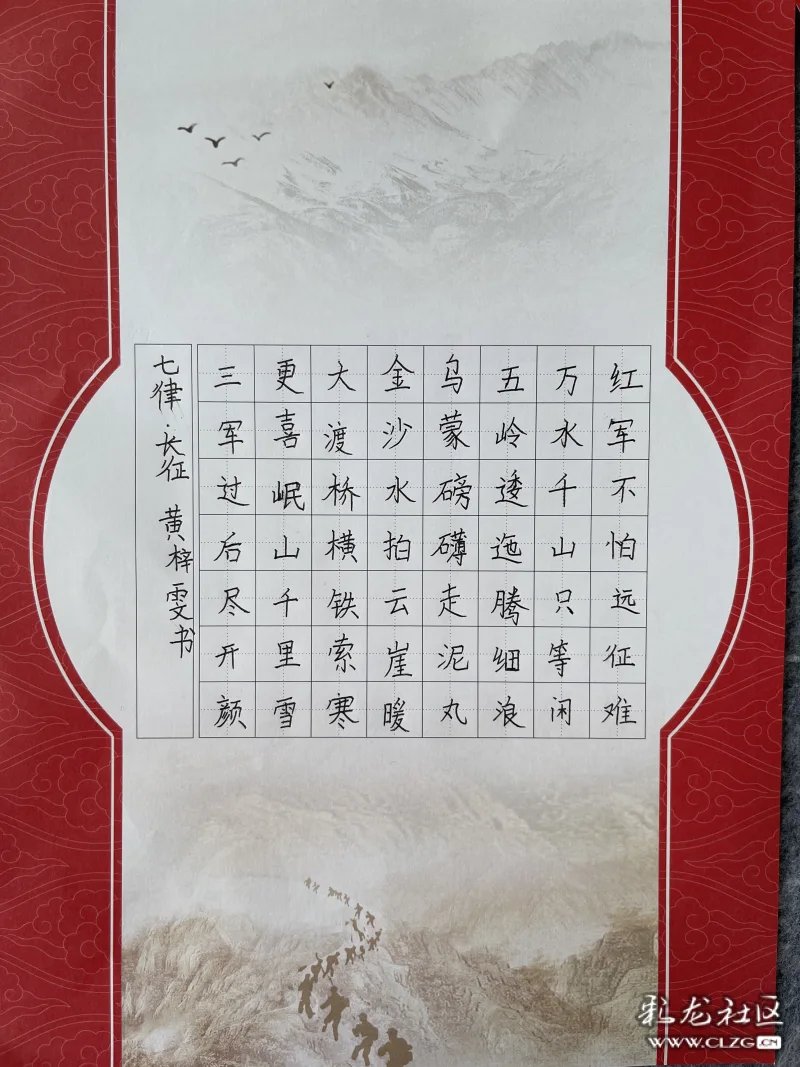 红军不怕远征难
万水千山只等闲
五岭逶迤腾细浪
乌蒙磅礴走泥丸
金沙水拍云崖暖
大渡桥横铁索寒
更喜岷山千里雪
三军过后尽开颜
七律·长征 黄梓雯书
彩龙社区
WWW.CLZG.CN